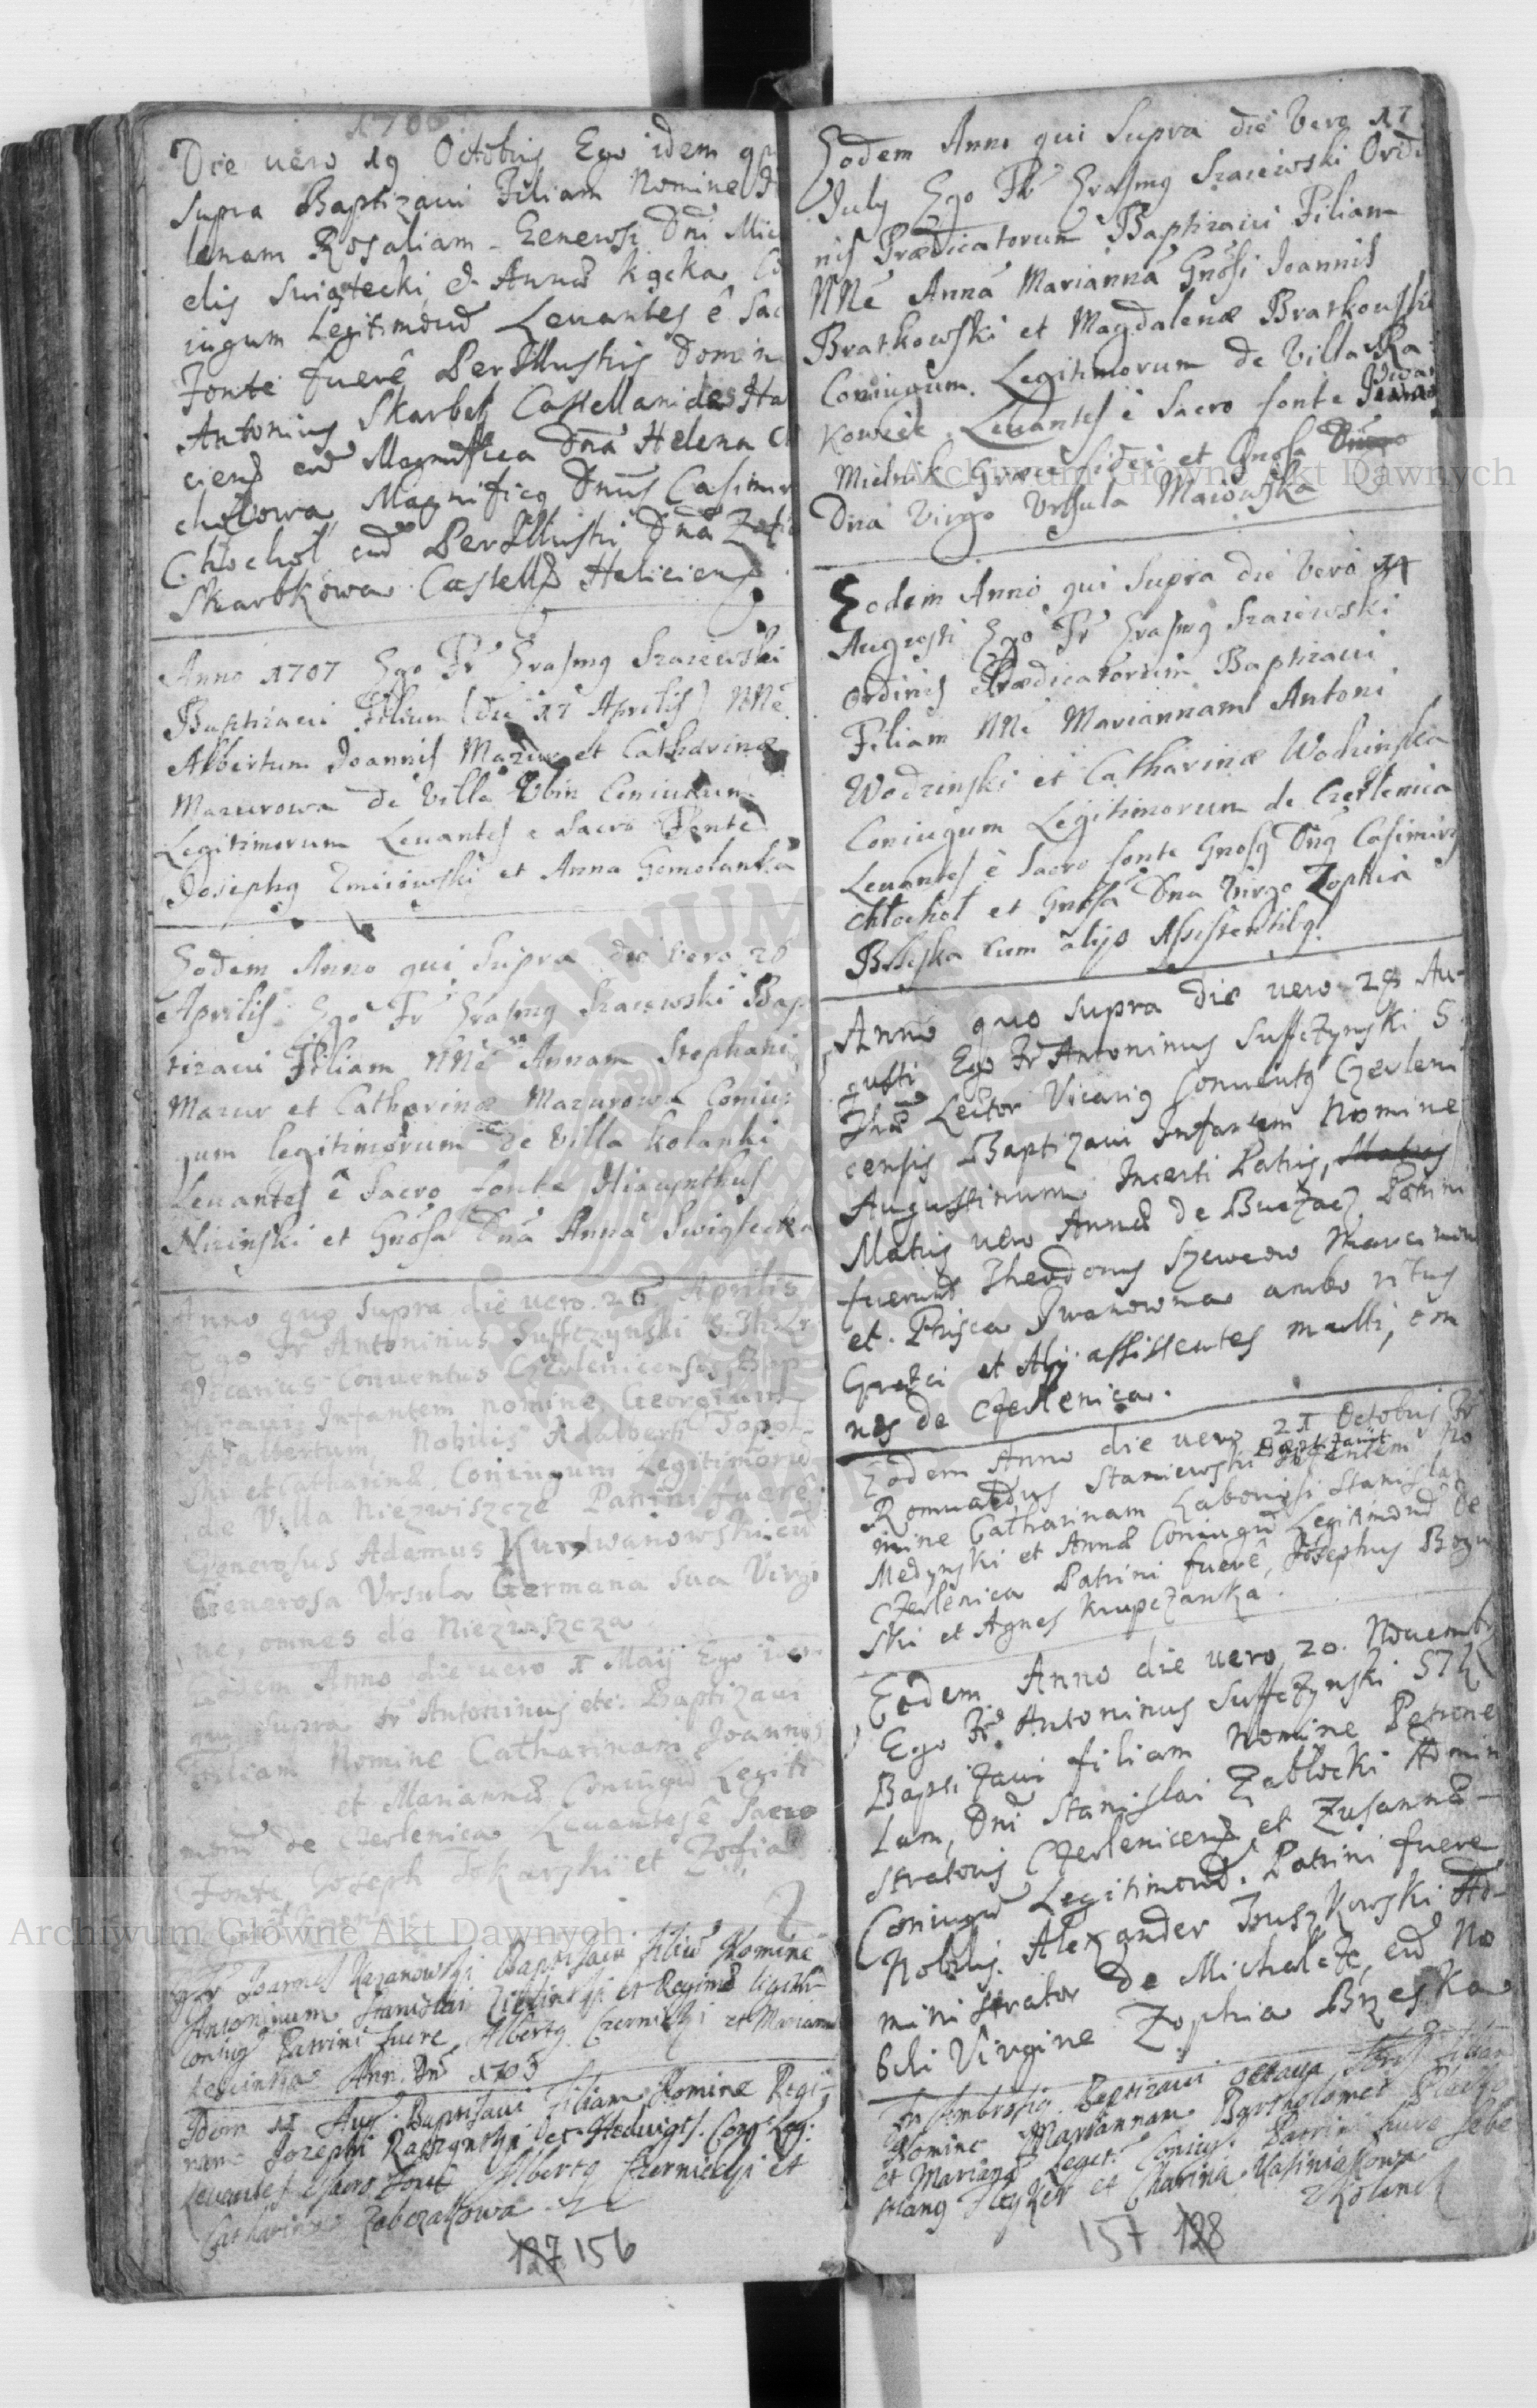 1706
Die uero 19 Octobris Ego idem qui
supra Baptizaui Filiam Nomine
lenam Rosaliam Generosi Dni Mich
elis Swiątecki & Annæ Kącka Co
iugum Legitimorū Leuantes ê Sac
Fonte fuerê PerIllustris Domin
Antonius Skarbek Castellanides Ha
ciens cū Magnifica Dnā Helena Ch
chołowa, Magnificq Dnus Casimir
Chłochoł cū PerIllustri Dnā Zofi
Skarbkowa Castell Halicien
Anno 1707 Ego Fr Erasmq Szaiewski
Baptizaui Filium (die 17 Aprilis) NNe
Albertum Joannis Mazur et Catharinæ
Mazurowa de Villa Ubin Coniugum
Legitimorum Leuantes e Sacro Fonte
Josephq Zmiiowski et Anna Gomolanka
Eodem Anno qui Supra die vero 20
Aprilis Ego Fr Erasmq Szaiewski Bap
tizaui Filiam NNe Annam Stephani
Mazur et Catharinæ Mazurowa Coniu
gum legitimorum de Villa Kolanki
Leuantes ê Sacro fonte Hiacynthus
Nizinski et Gnosa Dnā Anna Swiątecka
Anno quo supra die uero 26 Aprilis
Ego Fr Antoninus Suffczynski S. Th. Lr
Vicarius Conuentus Czerlenicensis Bap
tizaui Infantem nomine Georgium
Adalbertum Nobilis Adalberti Topol
ski et Catharinæ Coniugum Legitimorū
de Villa Niezwiszcze Patrini fuerê
Generosus Adamus Kurdwanowski cū
Generosa Vrsula Germana sua Virgi
ne, omnes de Niezwiszcza
Eodem Anno die uero 1 Maij Ego idem
qui supra Fr Antoninus etc. Baptizaui
Filiam Nomine Catharinam Joannis
et Mariannæ Coniugū Legiti
morū de Czerlenica Leuantes ê Sacro
Fonte Joseph Tokarzki et Zofia
Fr Joannes Kazanowski Baptisaui filiū Nomine
Antoninum Stanislai Zielinski et Reginæ legitim
coniug Patrini fuere Albertq Czernicki et Marianna
Ann. Dni 1705
Idem 12 Aug. Baptisaui Filiam Nomine Regi
nam Jozephi Raczynski et Hedwigis Cong Leg:
Leuantes Sacro Fonte Albertq Czernicki et
Catharina Zabczakowa
127 156
Eodem Anno qui Supra die Vero 17
July Ego Fr Erasmq Szaiewski Ordi
nis Prædicatorum Baptizaui Filiam
NNe Annā Mariannā Gnosi Joannis
Bratkowski et Magdalenæ Bratkowski
Coniugum Legitimorum de Villa Ra
kowiec Leuantes ê Sacro fonte Iwan
Mielnik Græci fidei et Gnosa
Dna Virgo Vrsula Maiowska
Eodem Anno qui Supra die Vero 14
Augusti Ego Fr Erasmq Szaiewski
Ordinis Prædicatorum Baptizaui
Filiam NNe Mariannam Antoni
Wodzinski et Catharinæ Wodzinska
Coniugum Legitimorum de Czerlenica
Leuantes ê Sacro fonte Gnosq Dnq Casimirq
Chłochoł et Gnosa Dna Virgo Zophia
Brzeska cum alijs Assistentibq
Anno quo supra die uero 28 Au-
gusti Ego Fr Antoninus Suffczynski S.
Thæ Lector Vicariq Conuentq Czerleni
censis Baptizaui Infantem Nomine
Augustinum Incerti Patris, Matris
Matris uero Annæ de Buczacz Patrini
fuerunt Theodorus Szewcow Marcinow
et Prisca Iwanowna ambo ritus
Græci et Alij assistentes multi, om
nes de Czerlenica.
Eodem Anno die uero 21 Octobris Fr
Romualdus Staniewski Baptizauit Infantem No
mine Catharinam Laboriosi Stanislai
Medynski et Annæ Coniugū Legitimorū de
Czerlenica Patrini fuerê, Josephus Bogu
ski et Agnes Krupczanka.
Eodem Anno die uero 20. Nouembr
Ego Fr. Antoninus Suffczynski STL
Baptizaui filiam Nomine Petrone
lam, Dni Stanislai Zabłocki Admin
stratoris Czerlenicens et Zusannæ
Coniugū Legitimorū. Patrini fuere
Nobilis Alexander Iuszkowski Ad-
ministrator de Michalcze, cū No
bili Virgine Zophia Brzeska
Fr Ambrosiq Baptizaui octaua filiam
Nomine Mariannam Bartholomei
et Marianæ Leget. Coniug. Patrini fuere Seba
stianq et Catharina Kasiniakowa
z Kolanek
157 128
Archiwum Główne Akt Dawnych
Archiwum Główne Akt Dawnych